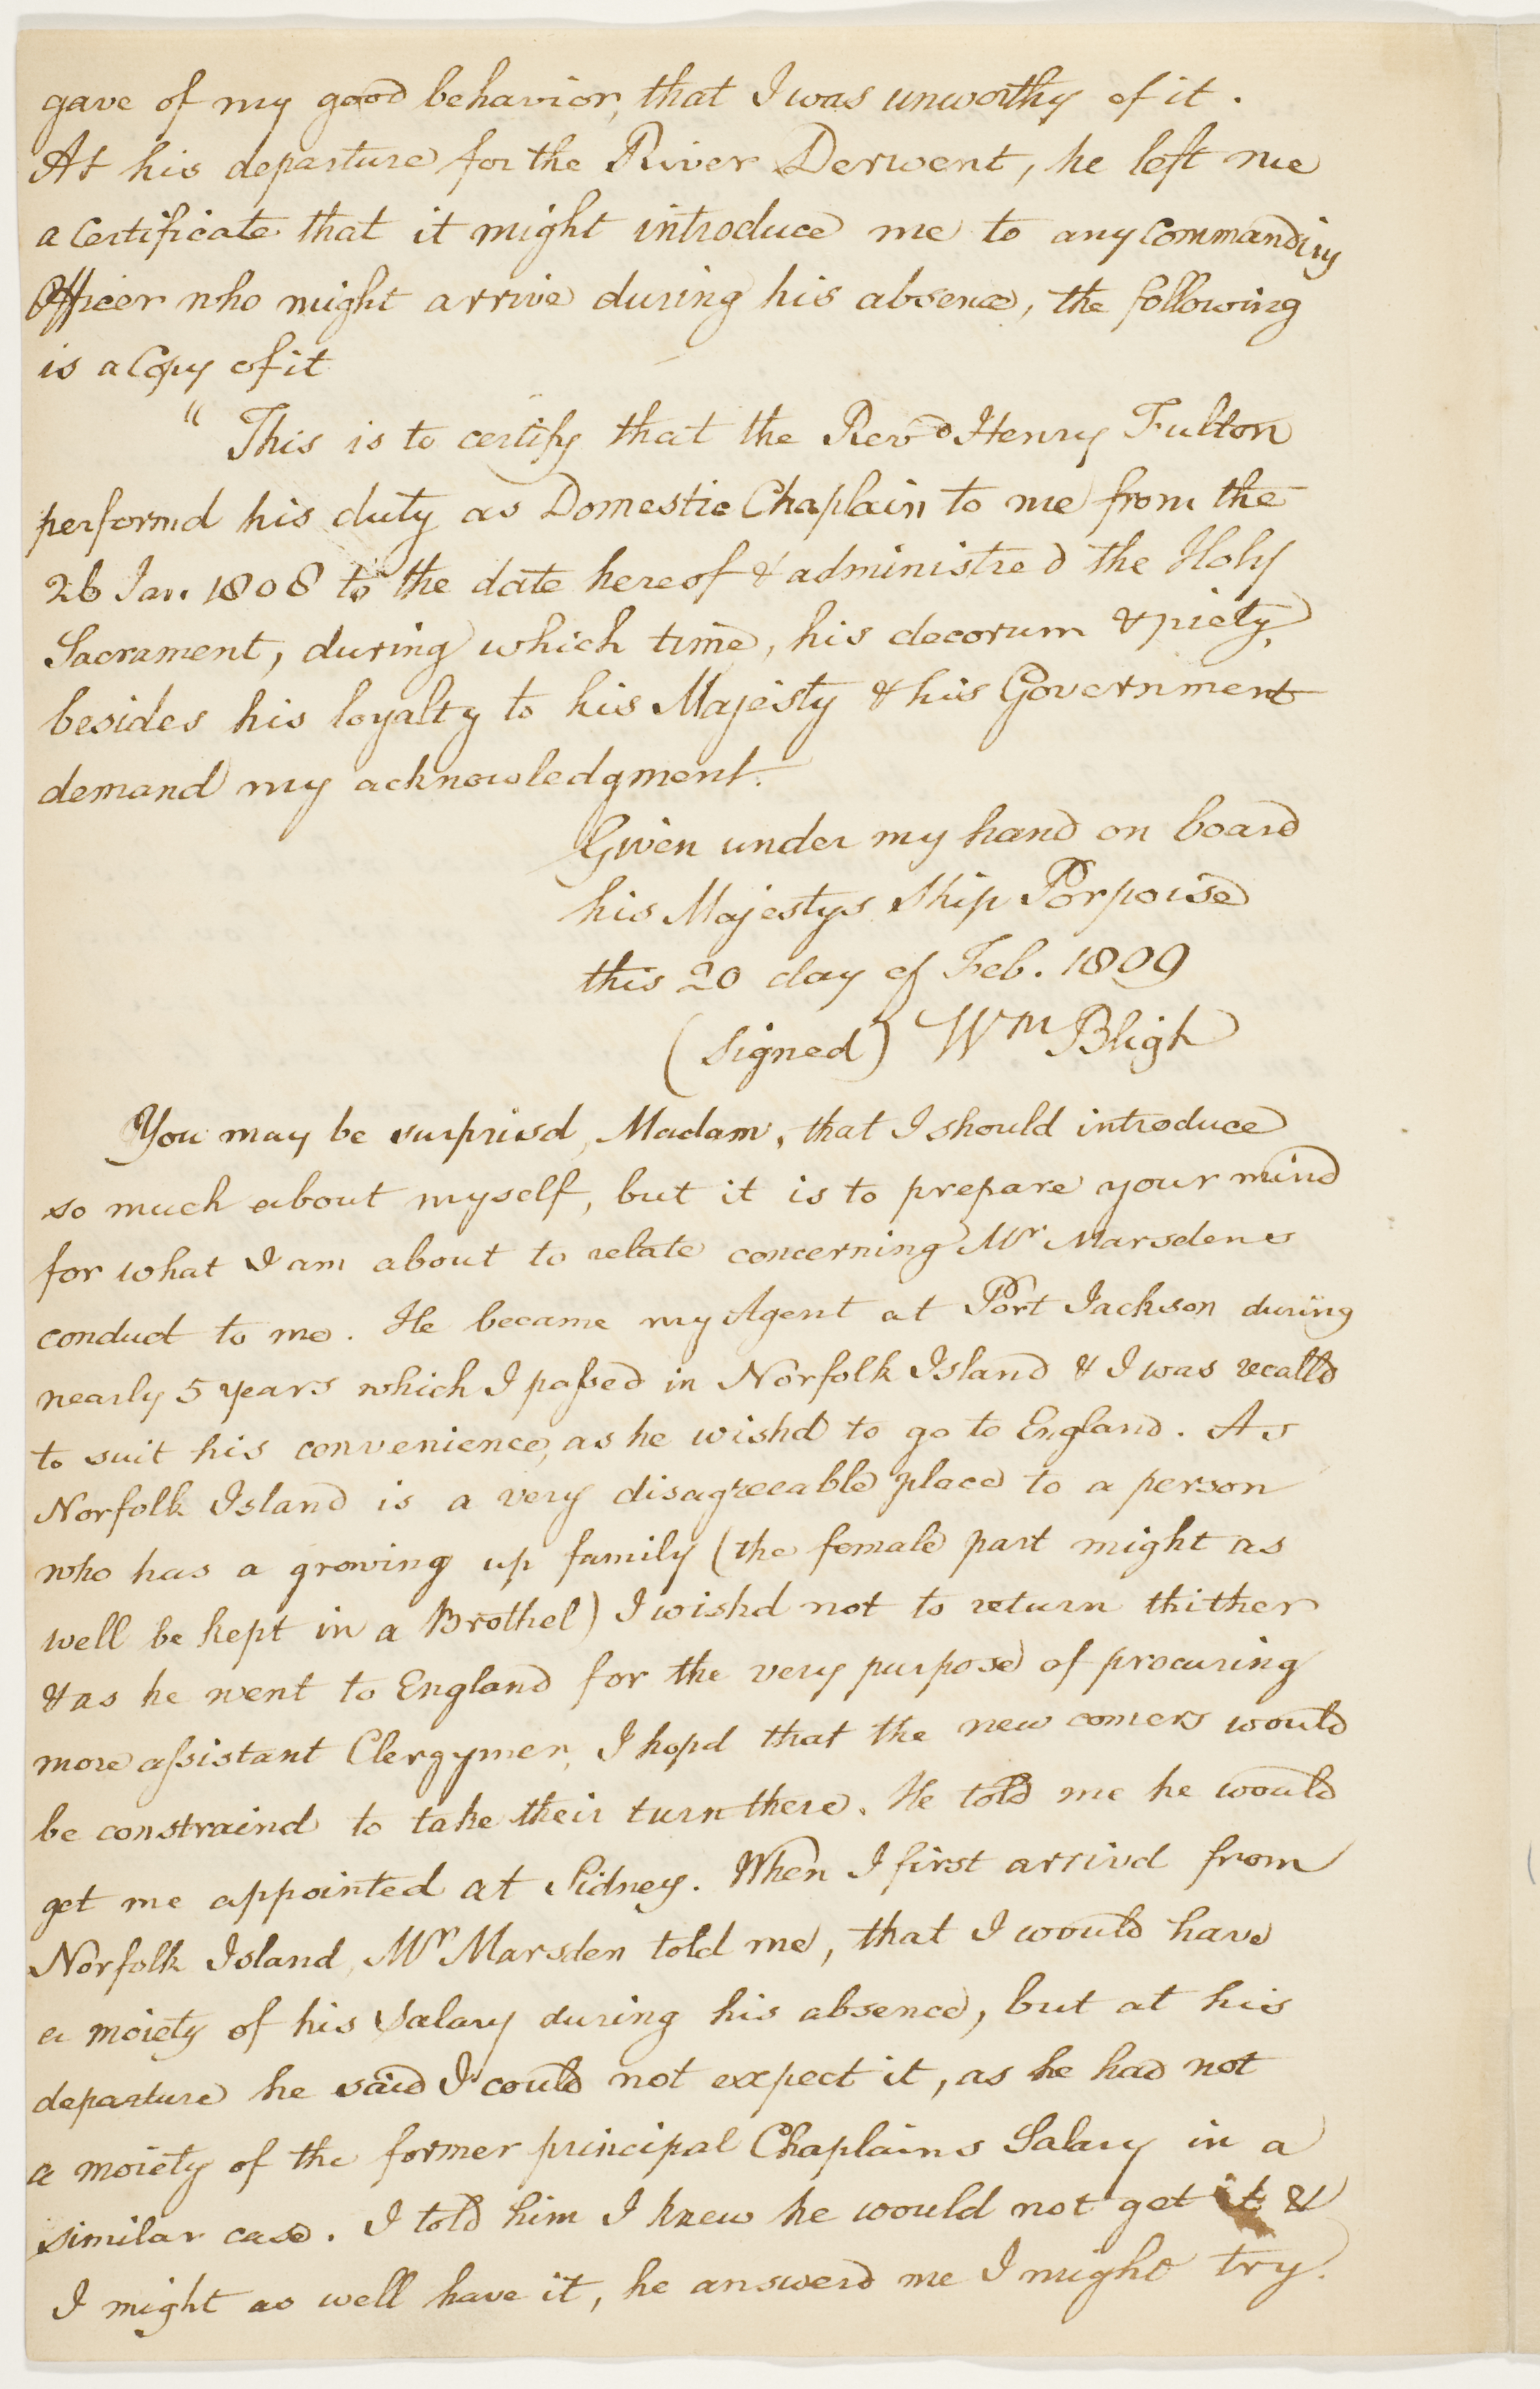 gave of my good behavior, that I was unworthy of it.
At his departure for the River Derwent, he left me
a Certificate that it might introduce me to any Commanding
Officer who might arrive during his absence, the following
is a Copy of it
" This is to certify that the Revd Henry Fulton
performd his duty as Domestic Chaplain to me from the
26 Jan. 1808 to the date hereof & administred the Holy
Sacrament, during which time, his decorum & piety,
besides his loyalty to his Majesty & his Government
demand my acknowledgment.
Given under my hand on board
his Majestys Ship Porpoise
this 20 day of Feb. 1809
(signed) Wm Bligh
You may be surprisd, Madam, that I should introduce
so much about myself, but it is to prepare your mind
for what I am about to relate concerning Mr Marsdens
conduct to me. He became my Agent at Port Jackson during
nearly 5 years which I passed in Norfolk Island & I was recalld
to suit his convenience, as he wishd to go to England. As
Norfolk Island is a very disagreeable place to a person
who has a growing up family (the female part might as
well be kept in a Brothel) I wishd not to return thither
& as he went to England for the very purpose of procuring
more assistant Clergymen, I hopd that the new comers would
be constraind to take their turn there. He told me he would
get me appointed at Sidney. When I first arrivd from
Norfolk Island, Mr Marsden told me, that I would have
a moiety of his Salary during his absence, but at his
departure he said I could not expect it, as he had not
a moiety of the former principal Chaplains Salary in a
similar case. I told him I knew he would not get it &
I might as well have it, he answerd me I might try.